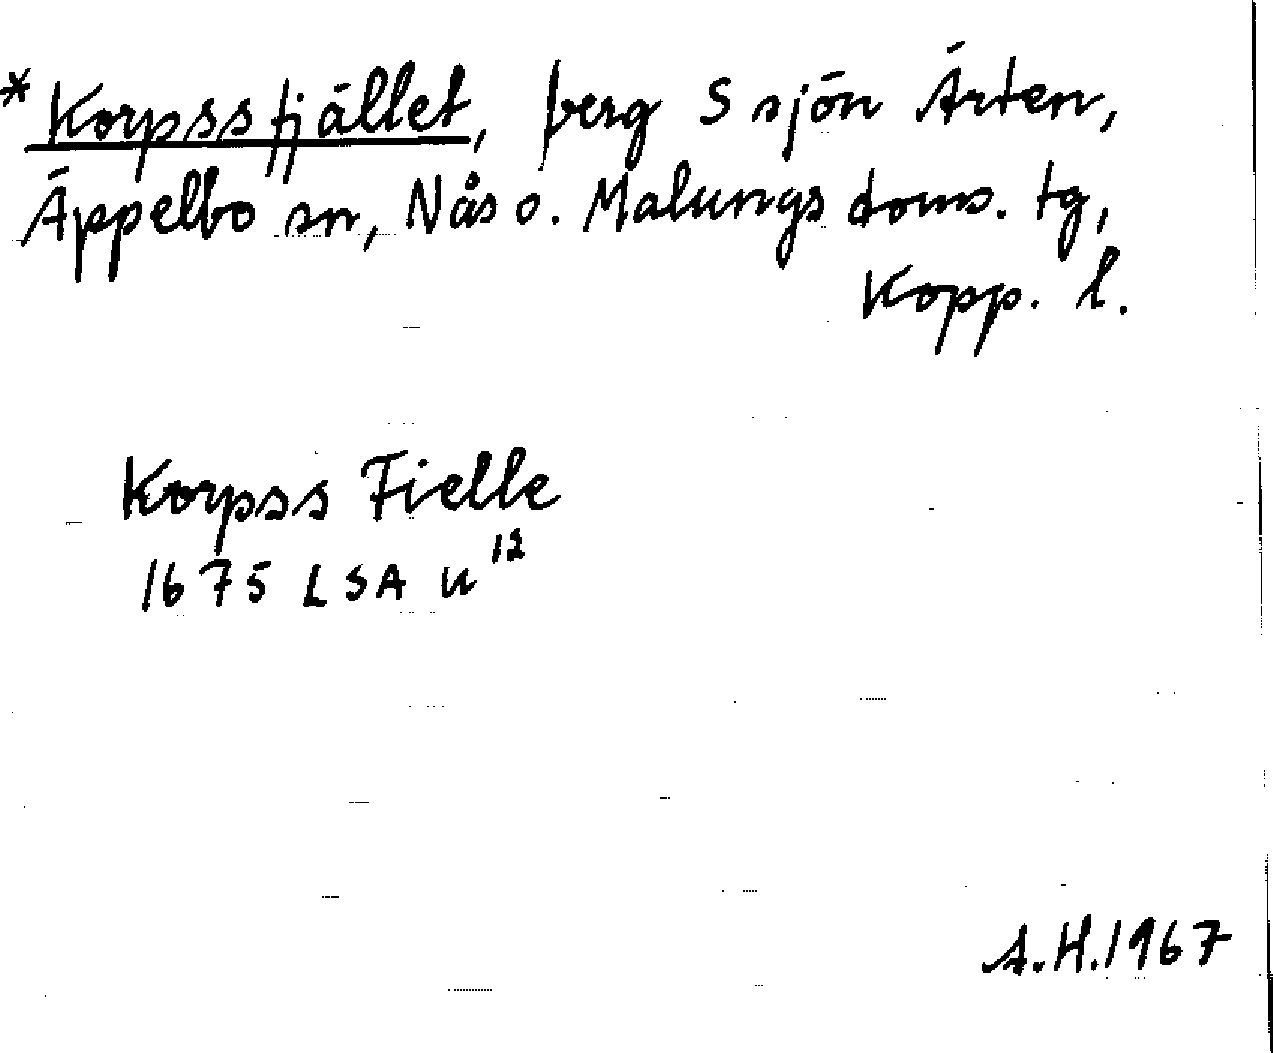 * Korpssfjället, berg S sjön Ärten,
Äppelbo sn, Nås o. Malungs doms. tg,
Kopp. l.
Korpss Fielle
1675 LSA U 12
A.H. 1967